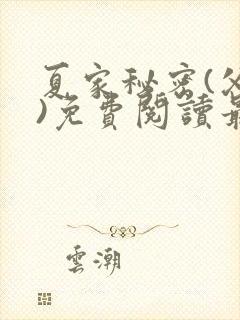 夏家秘密(父
)免費閱讀最
雲潮